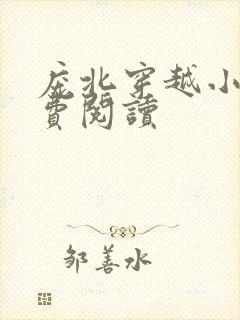 庇北穿越小
費閱讀
鄒善水